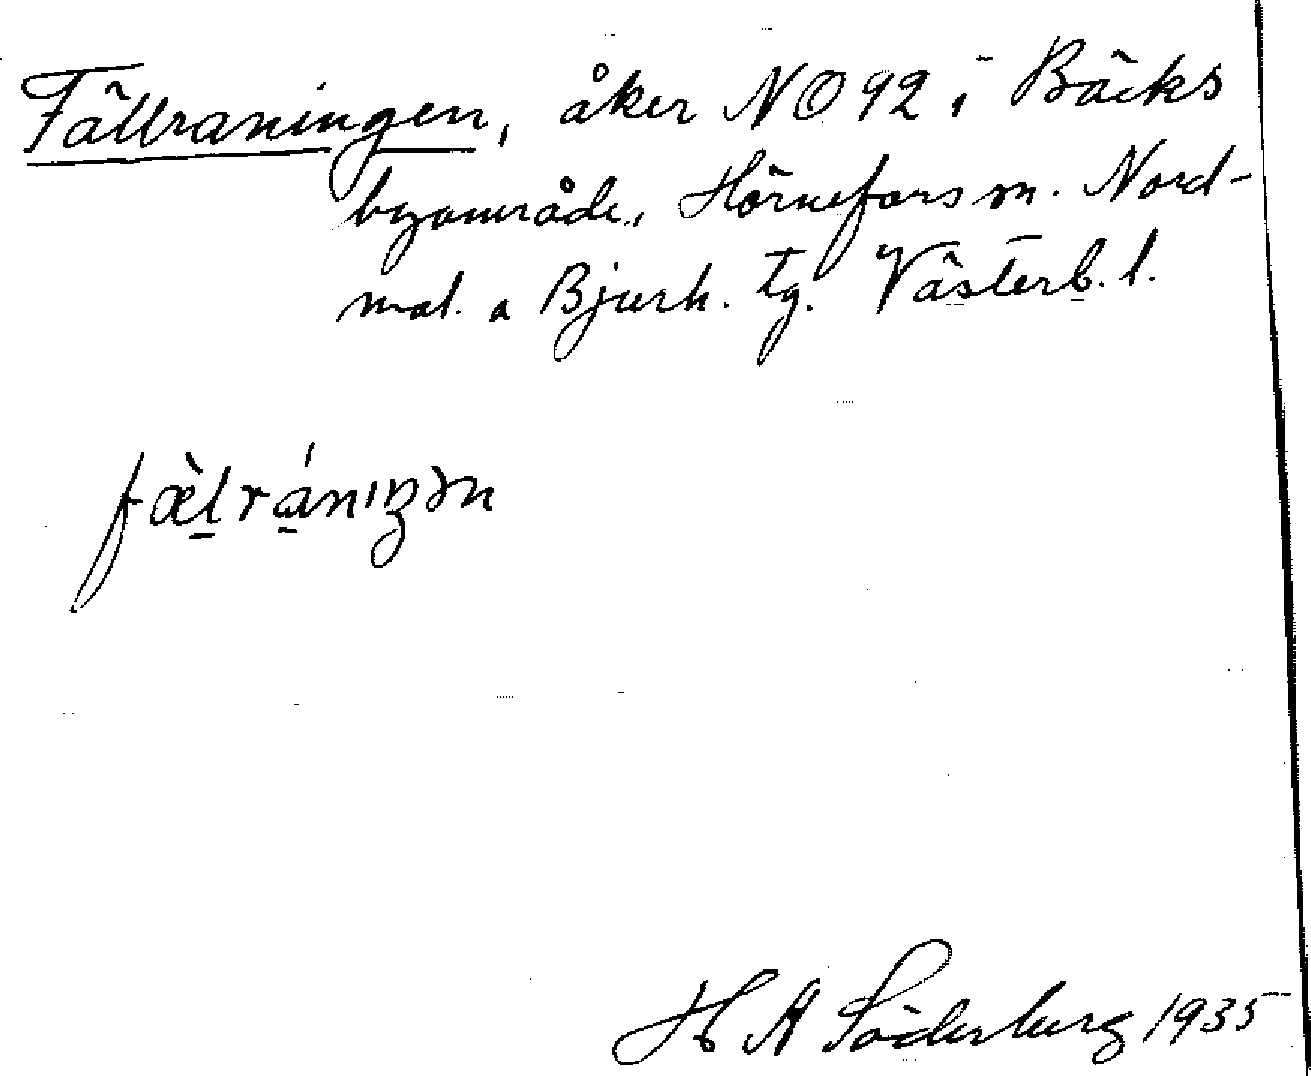 Fällraningen, åker NO 92 i Bäcks
byområde, Hörnefors sn. Nord-
mal. o Bjurh. tg. Västerb. l.
fæ̀lrániŋən
H A Söderberg 1935